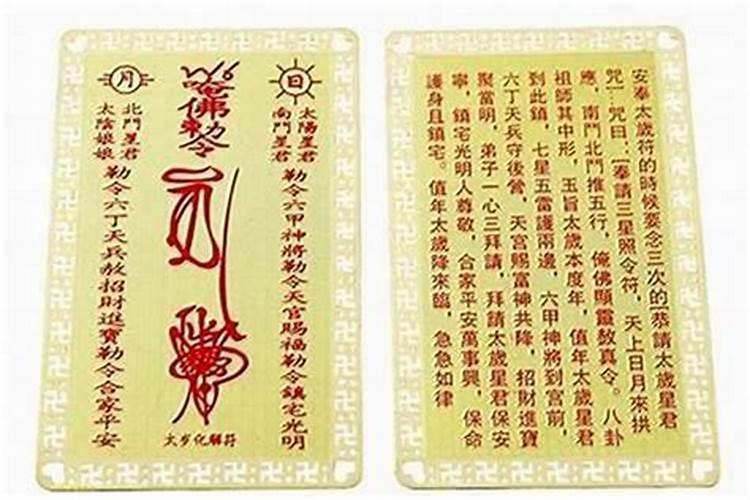 日
太陽星君
南鬥星君
勒令六甲神將勒令天官賜福勒令鎮宅光明
唵佛勅令
太岁化解符
月
北鬥星君
太陰娘娘
勒令六丁天兵敖招財進寶勒令合家平安
安奉太歲符的時候要念三次的[恭請太歲星君
咒]咒曰:[奉請三星照令符,天上日月來拱
應,南鬥北鬥推五行,俺佛顯靈敖真令。八卦
祖師其中形,玉旨太歲本度年,值年太歲星君
到此鎮,七星五雷護兩邊,六甲神將到宮前,
六丁天兵守後營,天宮賜富神共降,招財進寶
聚當明,弟子一心三拜請,拜請太歲星君保安
寧,鎮宅光明人尊敬,合家平安萬事興,保命
護身且鎮宅。值年太歲降來臨,急急如律